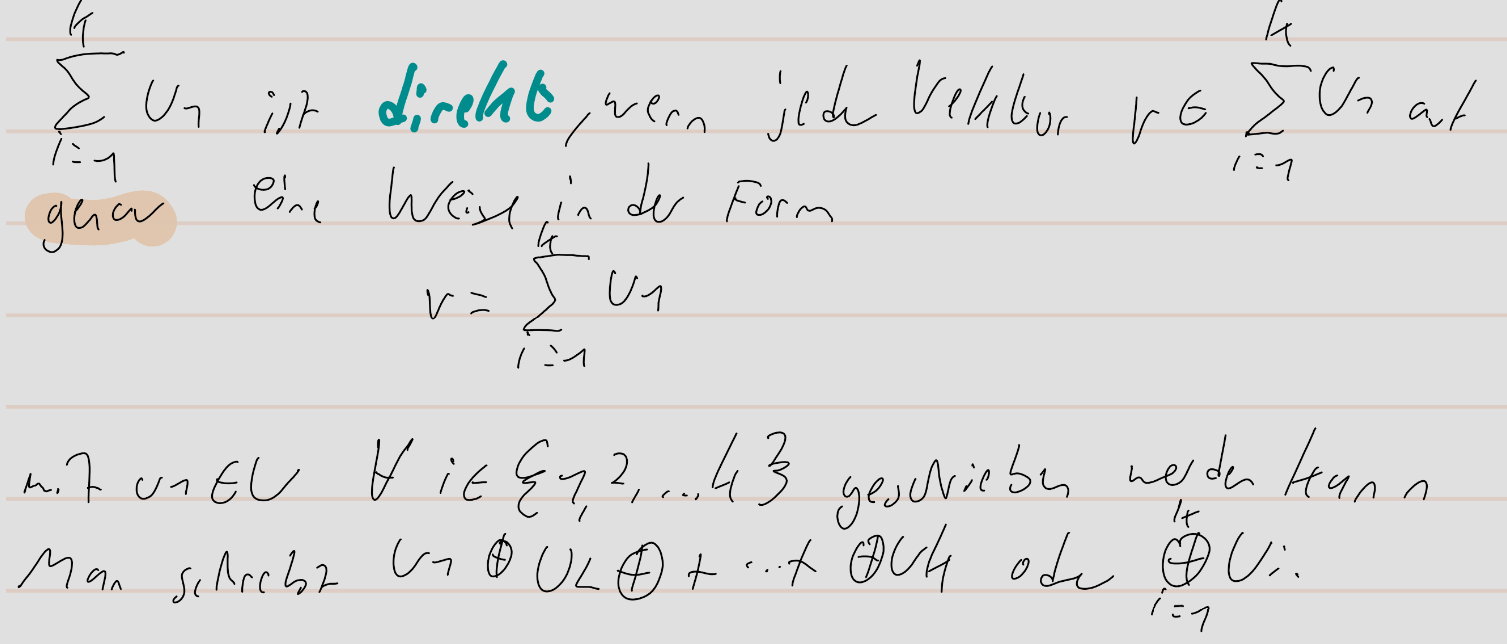 $\sum_{i=1}^{k} U_1$ ist direkt, wenn jeder Vektor $v \in \sum_{i=1}^{k} U_1$ auf
genau eine Weise in der Form
$v = \sum_{i=1}^{k} U_1$
mit $u_1 \in U$ $\forall$ $i \in \{1, 2, ... k\}$ geschrieben werden kann
Man schreibt $U_1 \oplus U_2 \oplus + ... + \oplus U_k$ oder $\bigoplus_{i=1}^{k} U_i$.